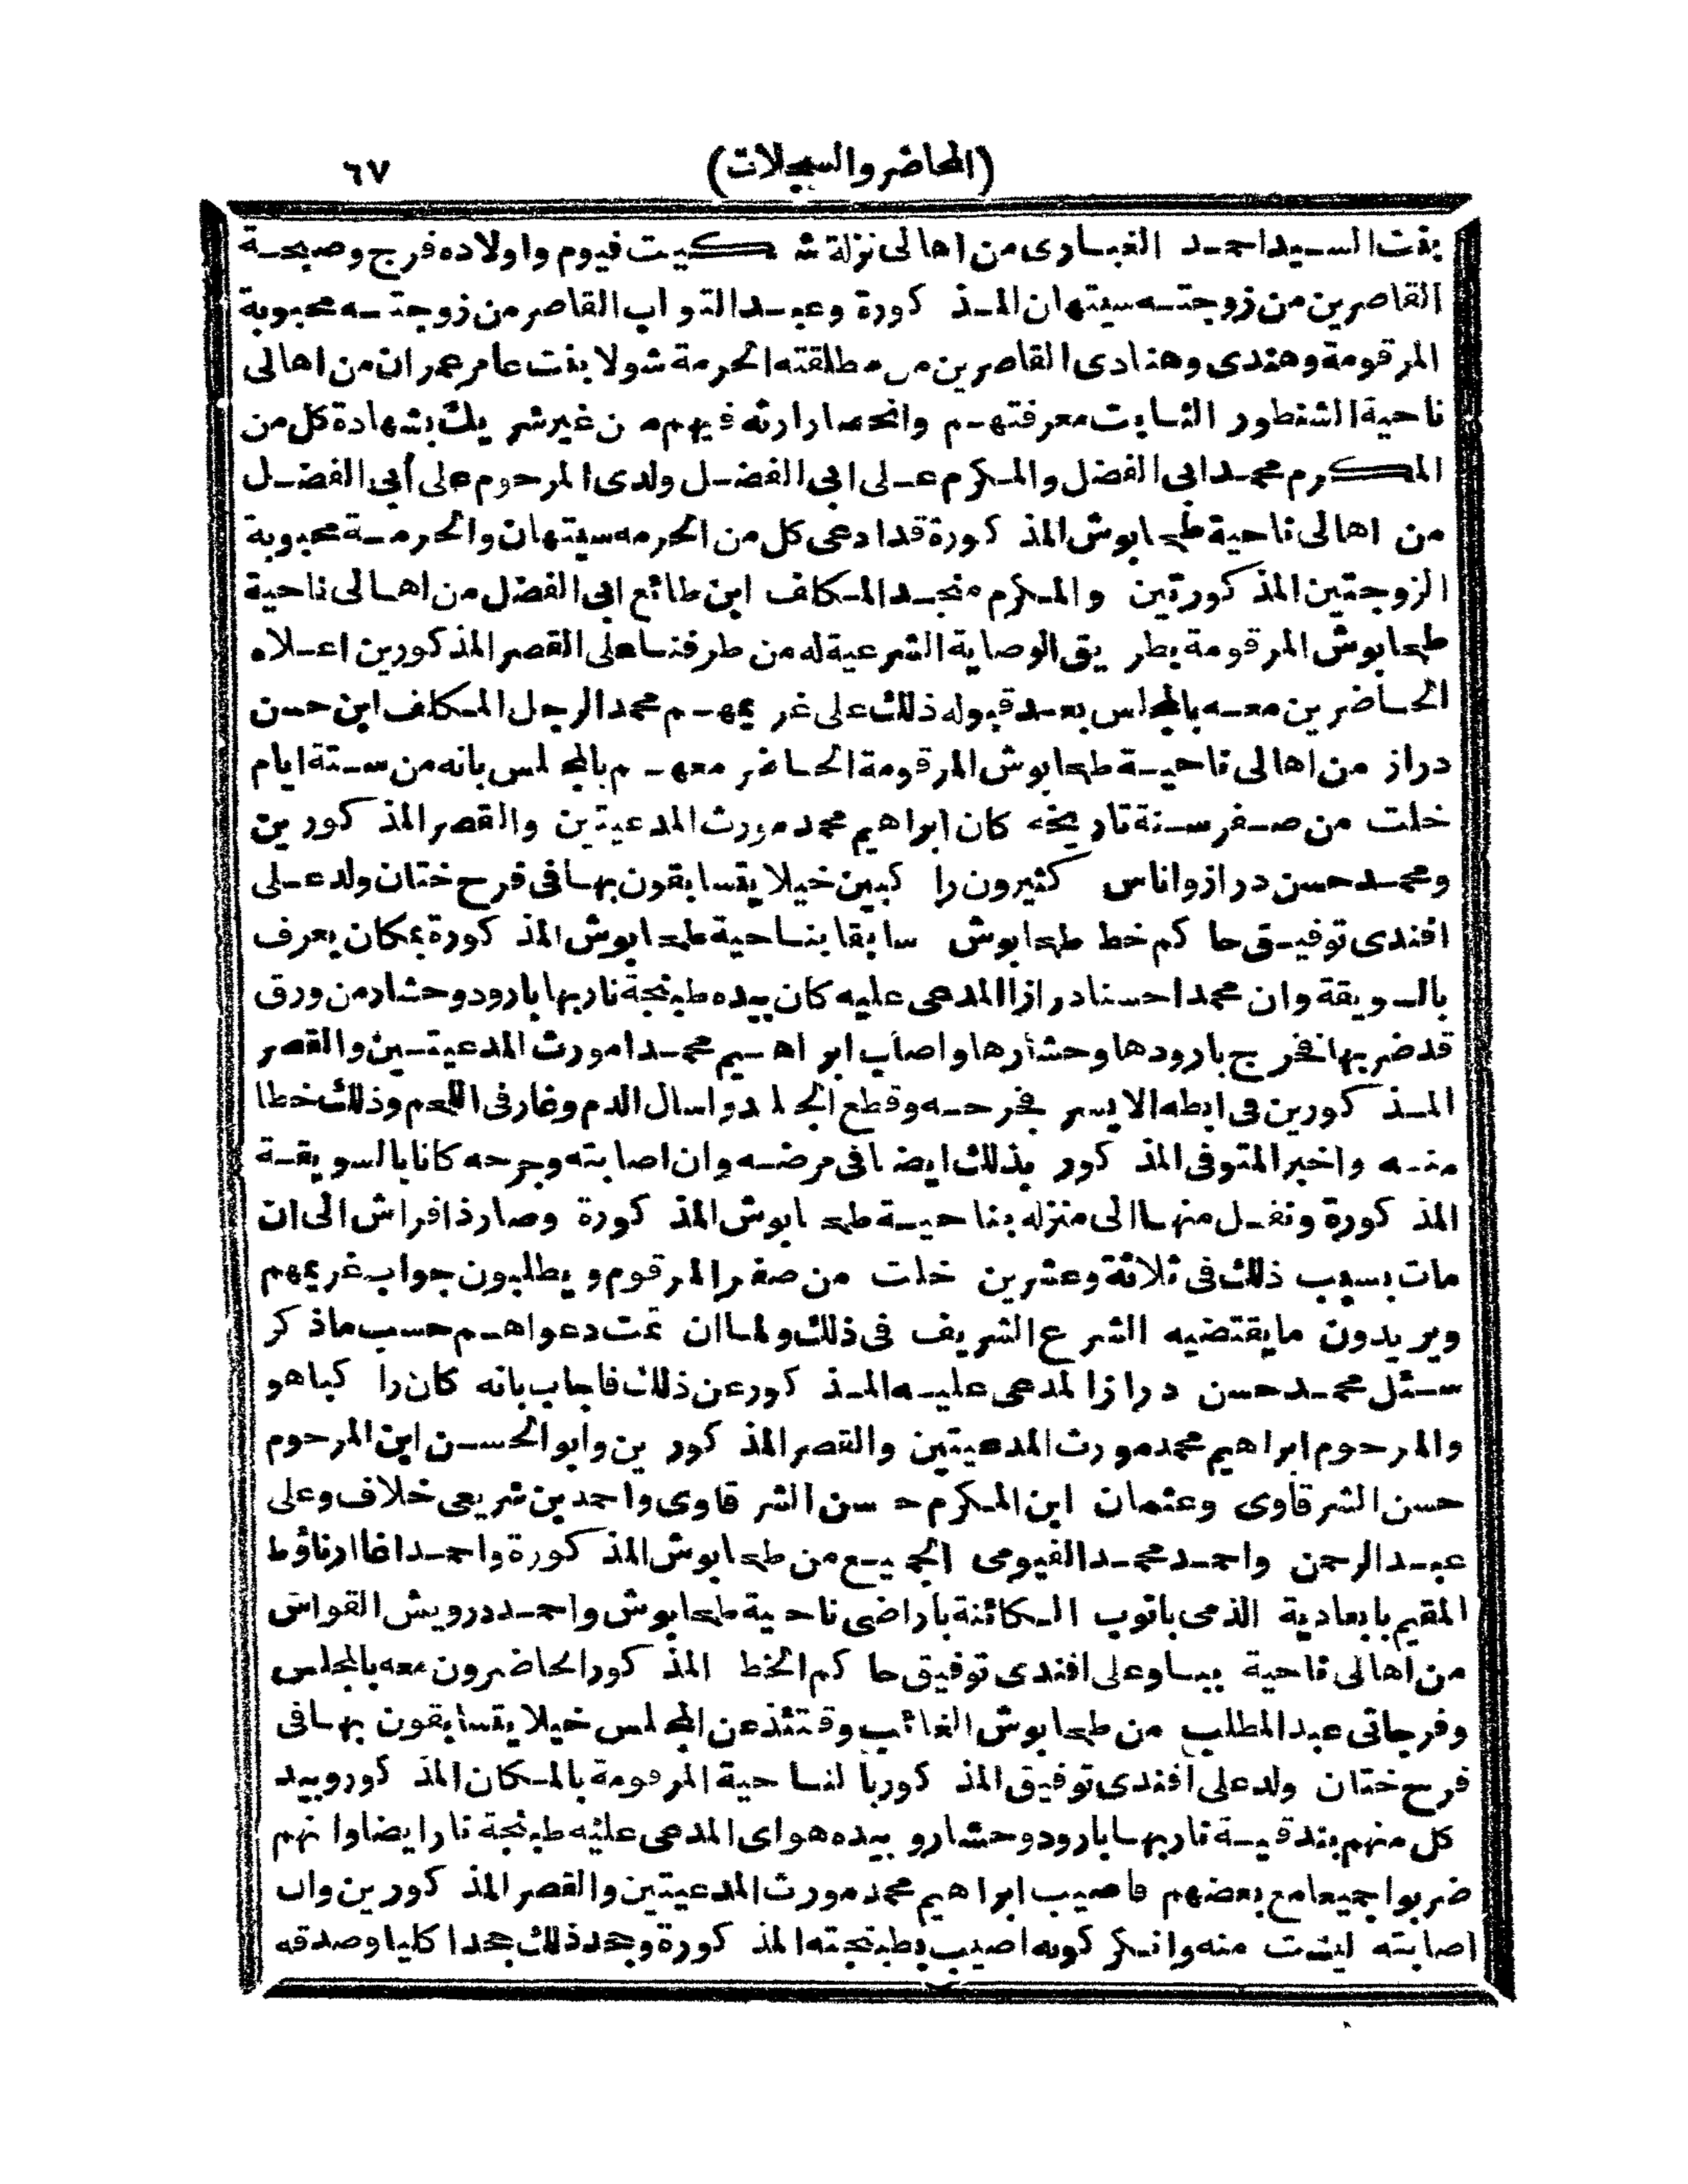 (المحاضر والسجلات) ٦٧
بنت السيد احمد الغبارى من اهالى نزلة شكيت فيوم واولاده فرج وصبحة
القاصرين من زوجته سيتهان المذكورة وعبد التواب القاصر من زوجته محبوبة
المرقومة وهندى وهنادى القاصرين من مطلقته الحرمة شولا بنت عامر عمران من اهالى
ناحية الشنطور الثابت معرفتهم وانحصار ارثه فيهم من غير شريك بشهادة كل من
المكرم محمد ابى الفضل والمكرم على ابى الفضل ولدى المرحوم على أبى الفضل
من اهالى ناحية طحابوش المذكورة قد ادعى كل من الحرمه سيتهان والحرمة محبوبة
الزوجتين المذكورتين والمكرم منجد المكلف ابن طائع ابى الفضل من اهالى ناحية
طحابوش المرقومة بطريق الوصاية الشرعية له من طرفنا على القصر المذكورين اعلاه
الحاضرين معه بالمجلس بعد قبوله ذلك على غريمهم محمد الرجل المكلف ابن حسن
دراز من اهالى ناحية طحابوش المرقومة الحاضر معهم بالمجلس بانه من ستة ايام
خلت من صفر سنة تاريخه كان ابراهيم محمد مورث المدعيتين والقصر المذكورين
ومحمد حسن دراز واناس كثيرون راكبين خيلا يتسابقون بها فى فرح ختان ولد على
افندى توفيق حاكم خط طحابوش سابقا بناحية طحابوش المذكورة بمكان يعرف
بالسويقة وان محمدا حسنا درازا المدعى عليه كان بيده طبنجة نار بها بارود وحشار من ورق
قد ضر بها فخرج بارودها وحشارها واصاب ابراهيم محمدا مورث المدعيتين والقصر
المذكورين فى ابطه الايسر فجرحه وقطع الجلد واسال الدم وغار فى اللحم وذلك خطا
منه واخبر المتوفى المذكور بذلك ايضا فى مرضه وان اصابته وجرحه كانا بالسويقة
المذكورة ونقل منها الى منزله بناحية طحابوش المذكورة وصار ذا فراش الى ان
مات بسبب ذلك فى ثلاثة وعشرين خلت من صفر المرقوم ويطلبون جواب غريمهم
ويريدون ما يقتضيه الشرع الشريف فى ذلك ولما ان تمت دعواهم حسب ماذكر
سئل محمد حسن درازا لمدعى عليه المذكور عن ذلك فاجاب بانه كان راكبا هو
والمرحوم ابراهيم محمد مورث المدعيتين والقصر المذكورين وأبو الحسن ابن المرحوم
حسن الشرقاوى وعثمان ابن المكرم حسن الشرقاوى واحمد بن شريعى خلاف وعلى
عبد الرحمن واحمد محمد الفيومى الجميع من طحابوش المذكورة واحمد اغا ارناؤط
المقيم بابعادية الذمى باتوب الكائنة بأراضى ناحية طحابوش واحمد درويش القواس
من أهالى ناحية ببا وعلى افندى توفيق حاكم الخط المذكور الحاضرون معه بالمجلس
وفرجانى عبد المطلب من طحابوش الغائب وقتئذ عن المجلس خيلا يتسابقون بها فى
فرح ختان ولد على أفندى توفيق المذكور بالناحية المرقومة بالمكان المذكور وبيد
كل منهم بندقية نار بها بارود وحشار وبيده هو اى المدعى عليه طبنجة نار ايضا وانهم
ضربوا جميعا مع بعضهم فاصيب ابراهيم محمد مورث المدعيتين والقصر المذكورين وان
اصابته ليست منه وانكر كونه اصيب بطبنجته المذكورة وجحد ذلك جحدا كليا وصدقه